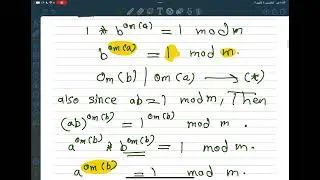 1 * b^{om(a)} = 1 mod m
b^{om(a)} = 1 mod m.
om(b) | om(a) → (*)
also since ab = 1 mod m, Then
(ab)^{om(b)} = 1^{om(b)} mod m.
a^{om(b)} * b^{om(b)} = 1 mod m.
a^{om(b)} = 1 mod m.